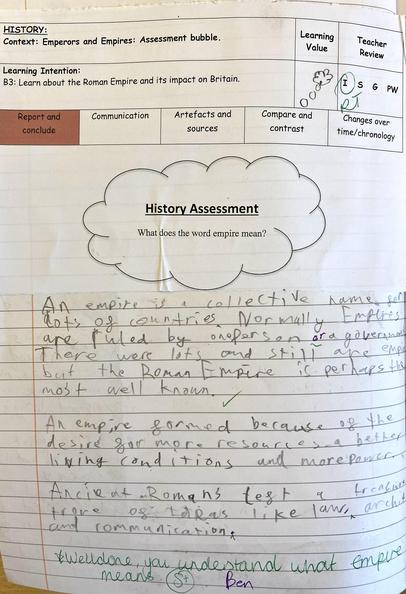 HISTORY:
Context: Emperors and Empires: Assessment bubble.
Learning Value
Teacher Review
Learning Intention:
B3: Learn about the Roman Empire and its impact on Britain.
I S G PW
Report and conclude
Communication
Artefacts and sources
Compare and contrast
Changes over time/chronology
History Assessment
What does the word empire mean?
An empire is a collective name for
lots of countries. Normally Empires
are ruled by one person or a
There were lots and still are
but the Roman Empire is perhaps the
most well known.
An empire formed because of the
desire for more resources a better
living conditions and more power.
Ancient Romans left a
trove of ideas like law,
and communication.
*Well done, you understand what empire
means S+ Ben